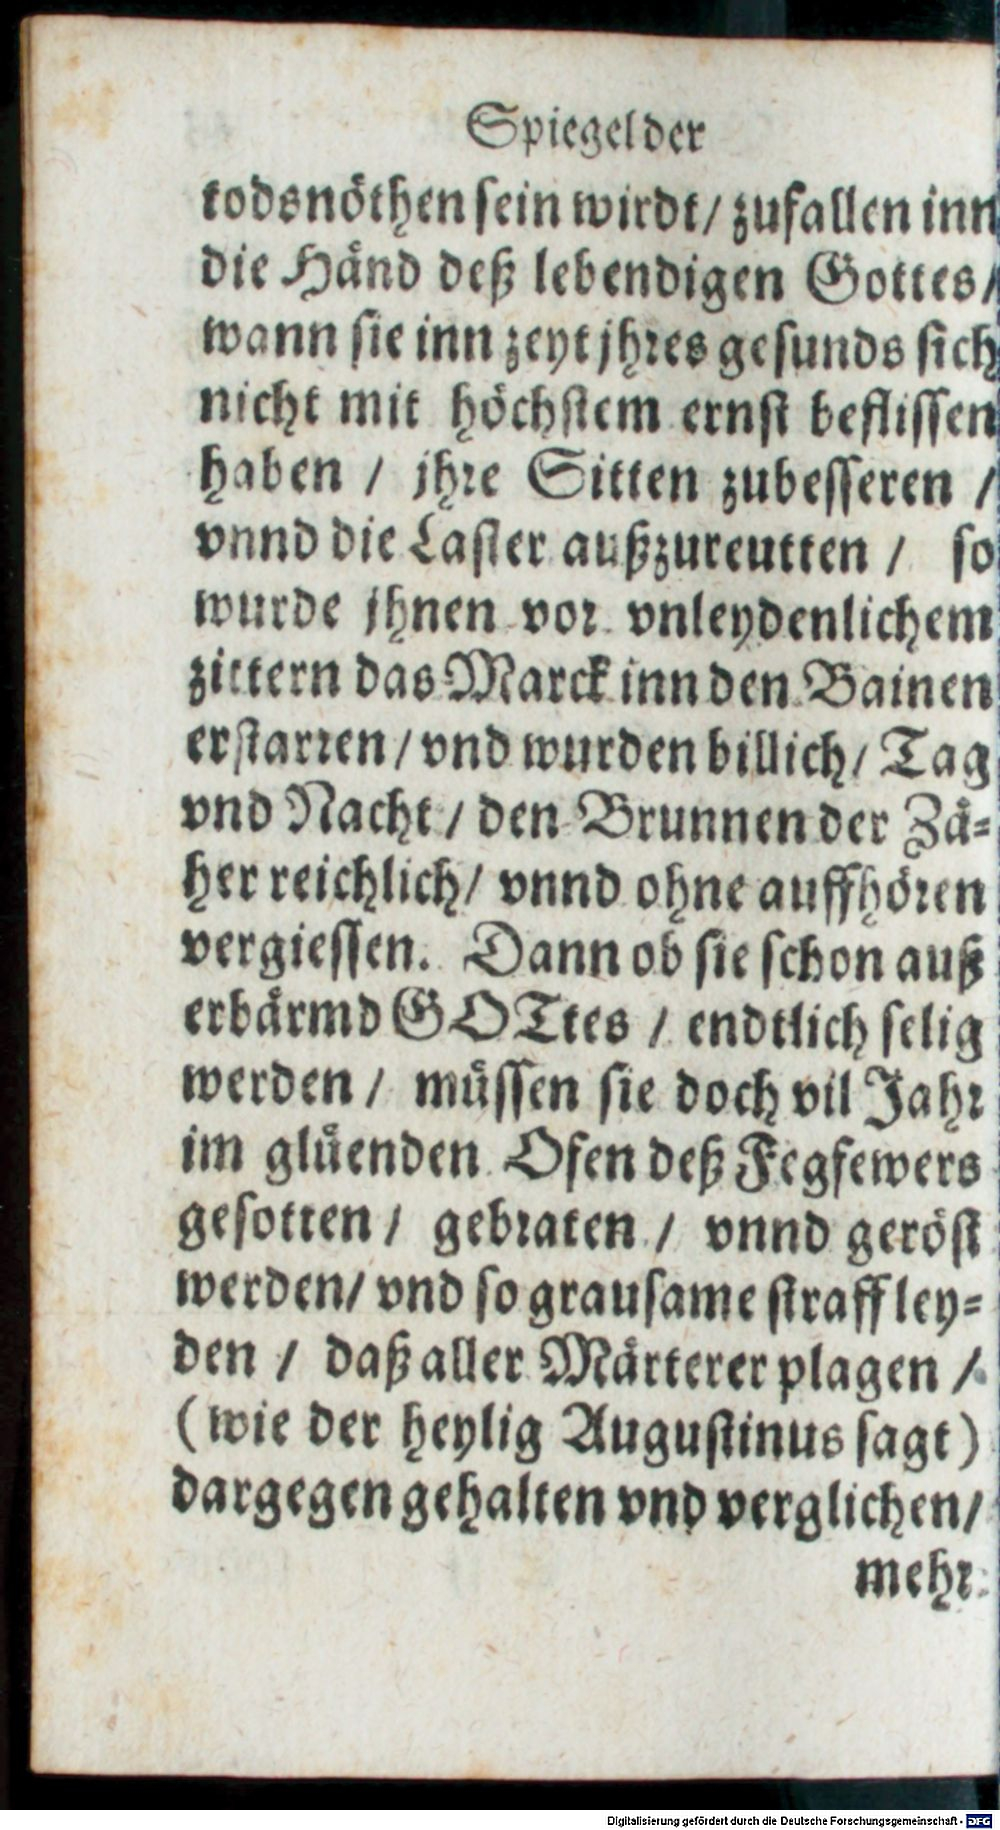 Spiegel der
todsnöthen sein wirdt/ zufallen inn
die Händ deß lebendigen Gottes/
wann sie inn zeyt jhres gesunds sich
nicht mit höchstem ernst beflissen
haben / jhre Sitten zubesseren /
vnnd die Laster außzureutten / so
wurde jhnen vor vnleydenlichem
zittern das Marck inn den Bainen
erstarren / vnd wurden billich/ Tag
vnd Nacht / den Brunnen der Zä-
her reichlich/ vnnd ohne auffhören
vergiessen. Dann ob sie schon auß
erbärmd GOTtes / endtlich selig
werden / müssen sie doch vil Jahr
im glüenden Ofen deß Fegfewers
gesotten / gebraten / vnnd geröst
werden/ vnd so grausame straff ley-
den / daß aller Märterer plagen /
(wie der heylig Augustinus sagt)
dargegen gehalten vnd verglichen/
mehr
Digitalisierung gefördert durch die Deutsche Forschungsgemeinschaft - DFG